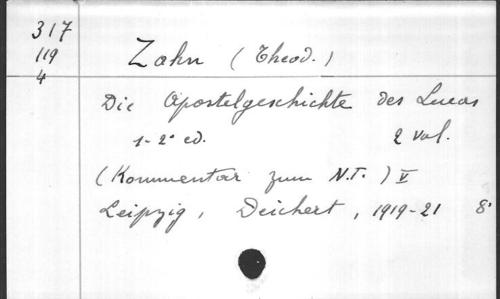 317
119
4
Zahn (Theod.)
Die Apostelgeschichte des Lucas
1-2ª ed. 2 vol.
(Kommentar zum N.T.) V
Leipzig, Deichert, 1919-21 8°